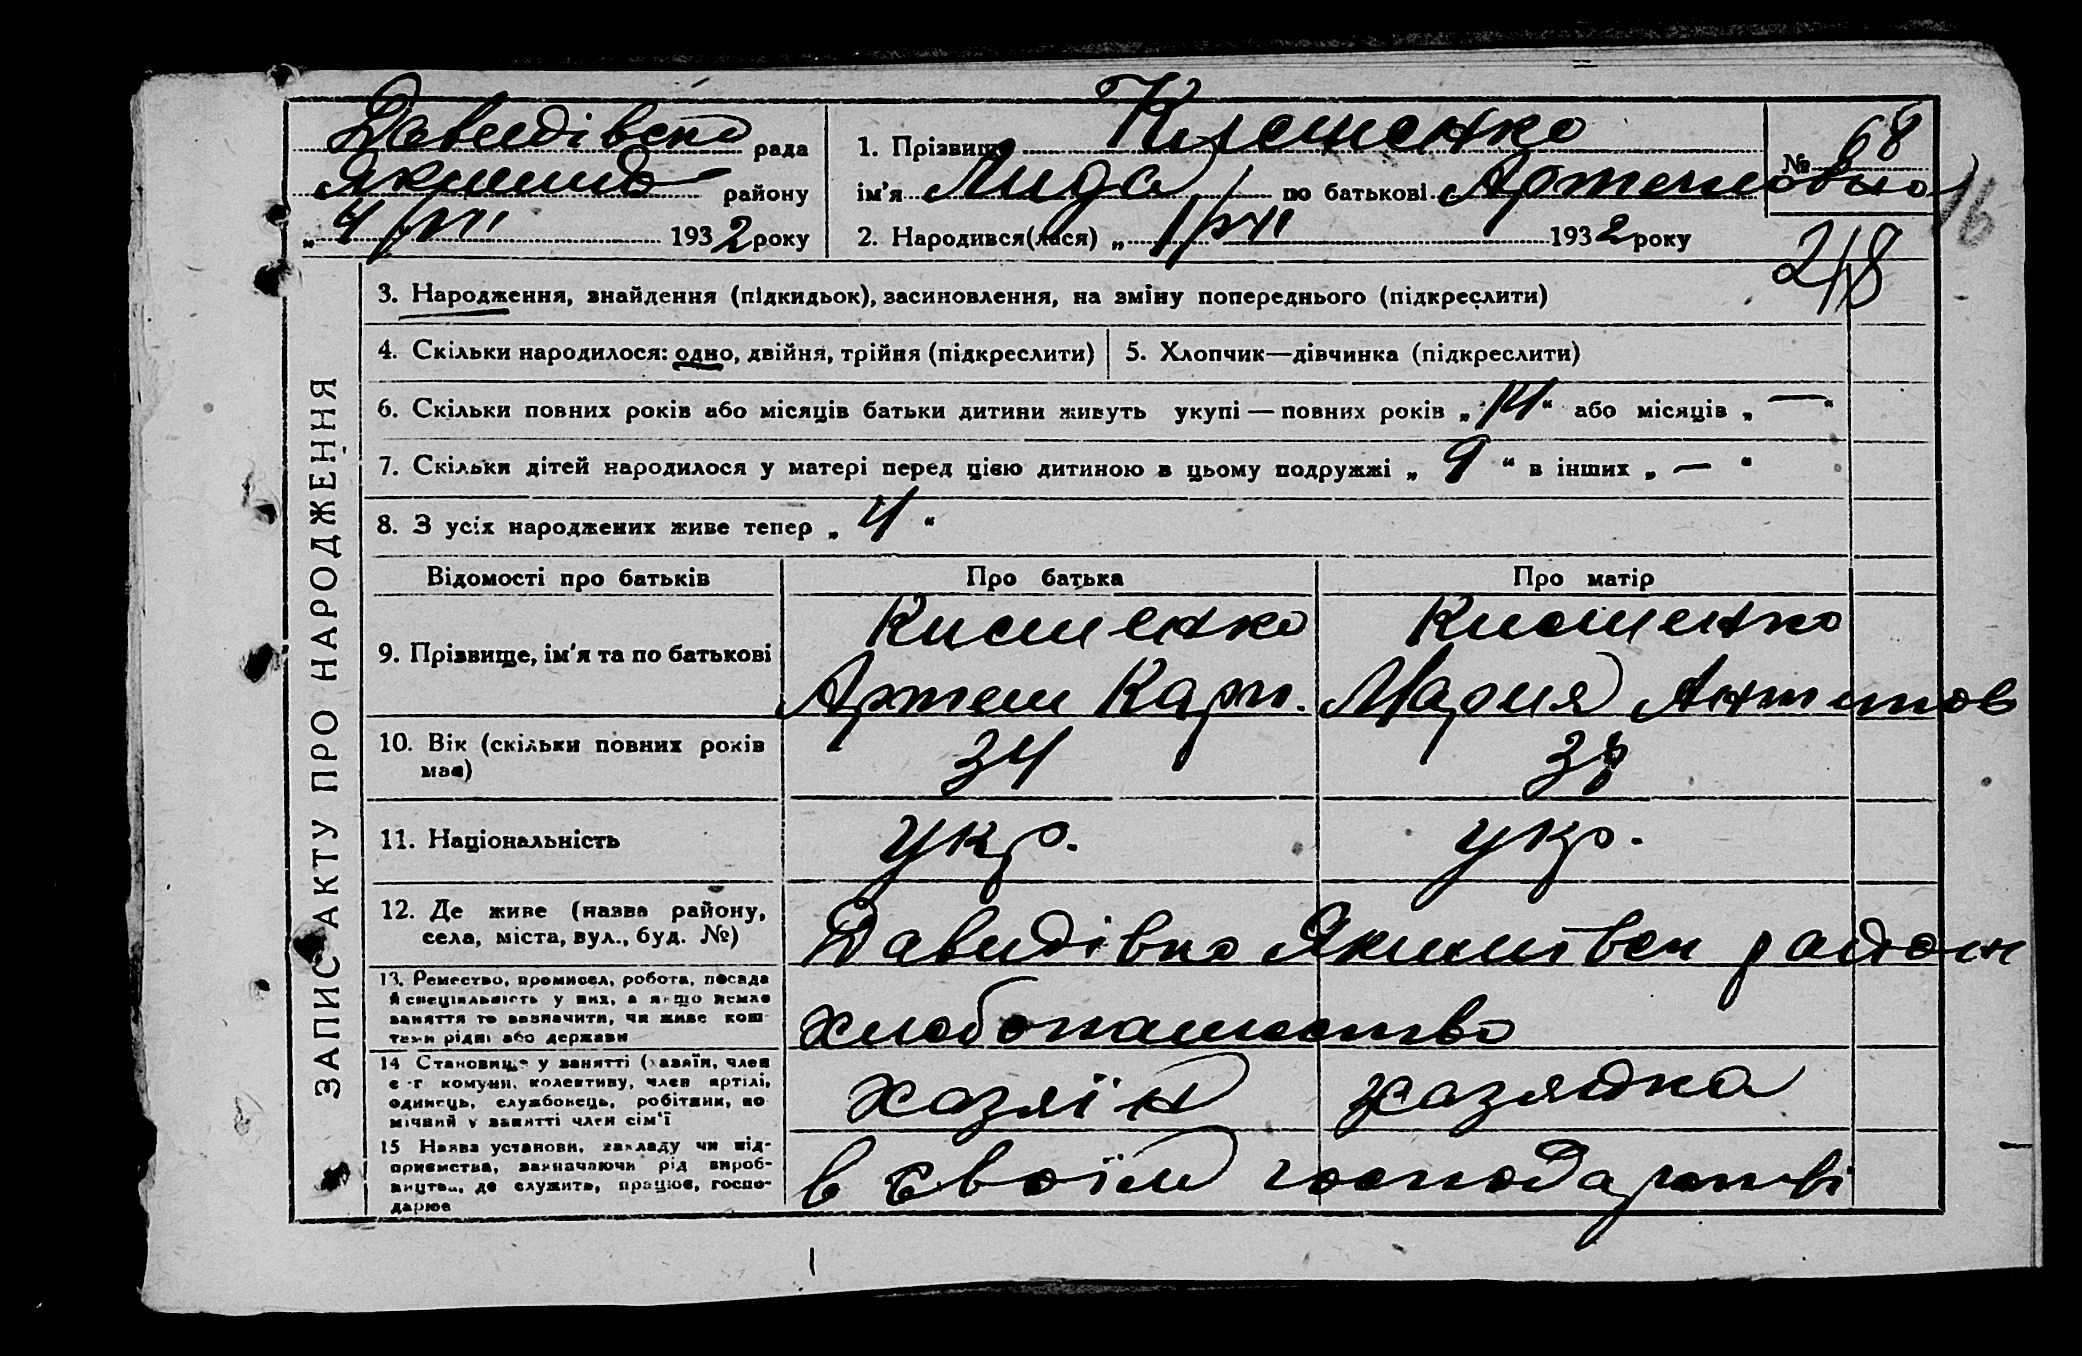 Давидівська рада
Якимів району
„4/VII 1932 року
1. Прізвище Кищенко
ім'я Лида по батькові Артемовна
2. Народився(лася) „1/VII 1932 року
№ 68
16
218
ЗАПИС АКТУ ПРО НАРОДЖЕННЯ
3. Народження, знайдення (підкидьок), засиновлення, на зміну попереднього (підкреслити)
4. Скільки народилося: одно, двійня, трійня (підкреслити)
5. Хлопчик—дівчинка (підкреслити)
6. Скільки повних років або місяців батьки дитини живуть укупі — повних років „14“ або місяців „—“
7. Скільки дітей народилося у матері перед цією дитиною в цьому подружжі „9“ в інших „—“
8. З усіх народжених живе тепер „4“
Відомості про батьків Про батька Про матір
9. Прізвище, ім'я та по батькові
Кищенко Кищенко
Артем Карп. Мария Антипов
10. Вік (скільки повних років
має)
34
11. Національність укр. укр.
12. Де живе (назва району,
села, міста, вул., буд. №)
Давидівка Якимівськ район
13. Ремество, промисел, робота, посада
й спеціяльність у них, а якщо немає
заняття то зазначити, чи живе кош-
тами рідні або держави
хлебопашество
14 Становище у занятті (хазяїн, член
с.-г комуни, колективу, член артілі,
одинець, службовець, робітник, по-
мічний у занятті член сім'ї
хазяїн хазяйка
15 Назва установи, закладу чи під-
приємства, зазначаючи рід вироб-
ництва, де служить, працює, госпо-
дарює
в своїм господарстві